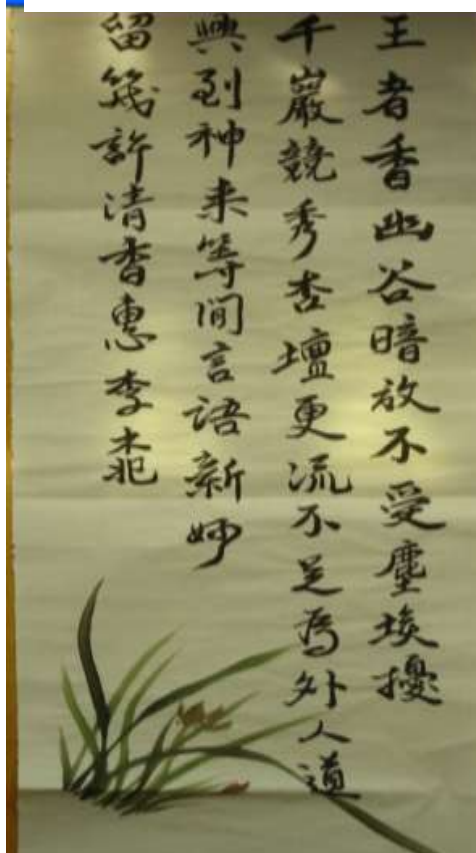 王者香幽谷暗放不受塵埃擾
千巖競秀杏壇更流不足為外人道
興到神来等间言语新妙
留幾許清香惠李